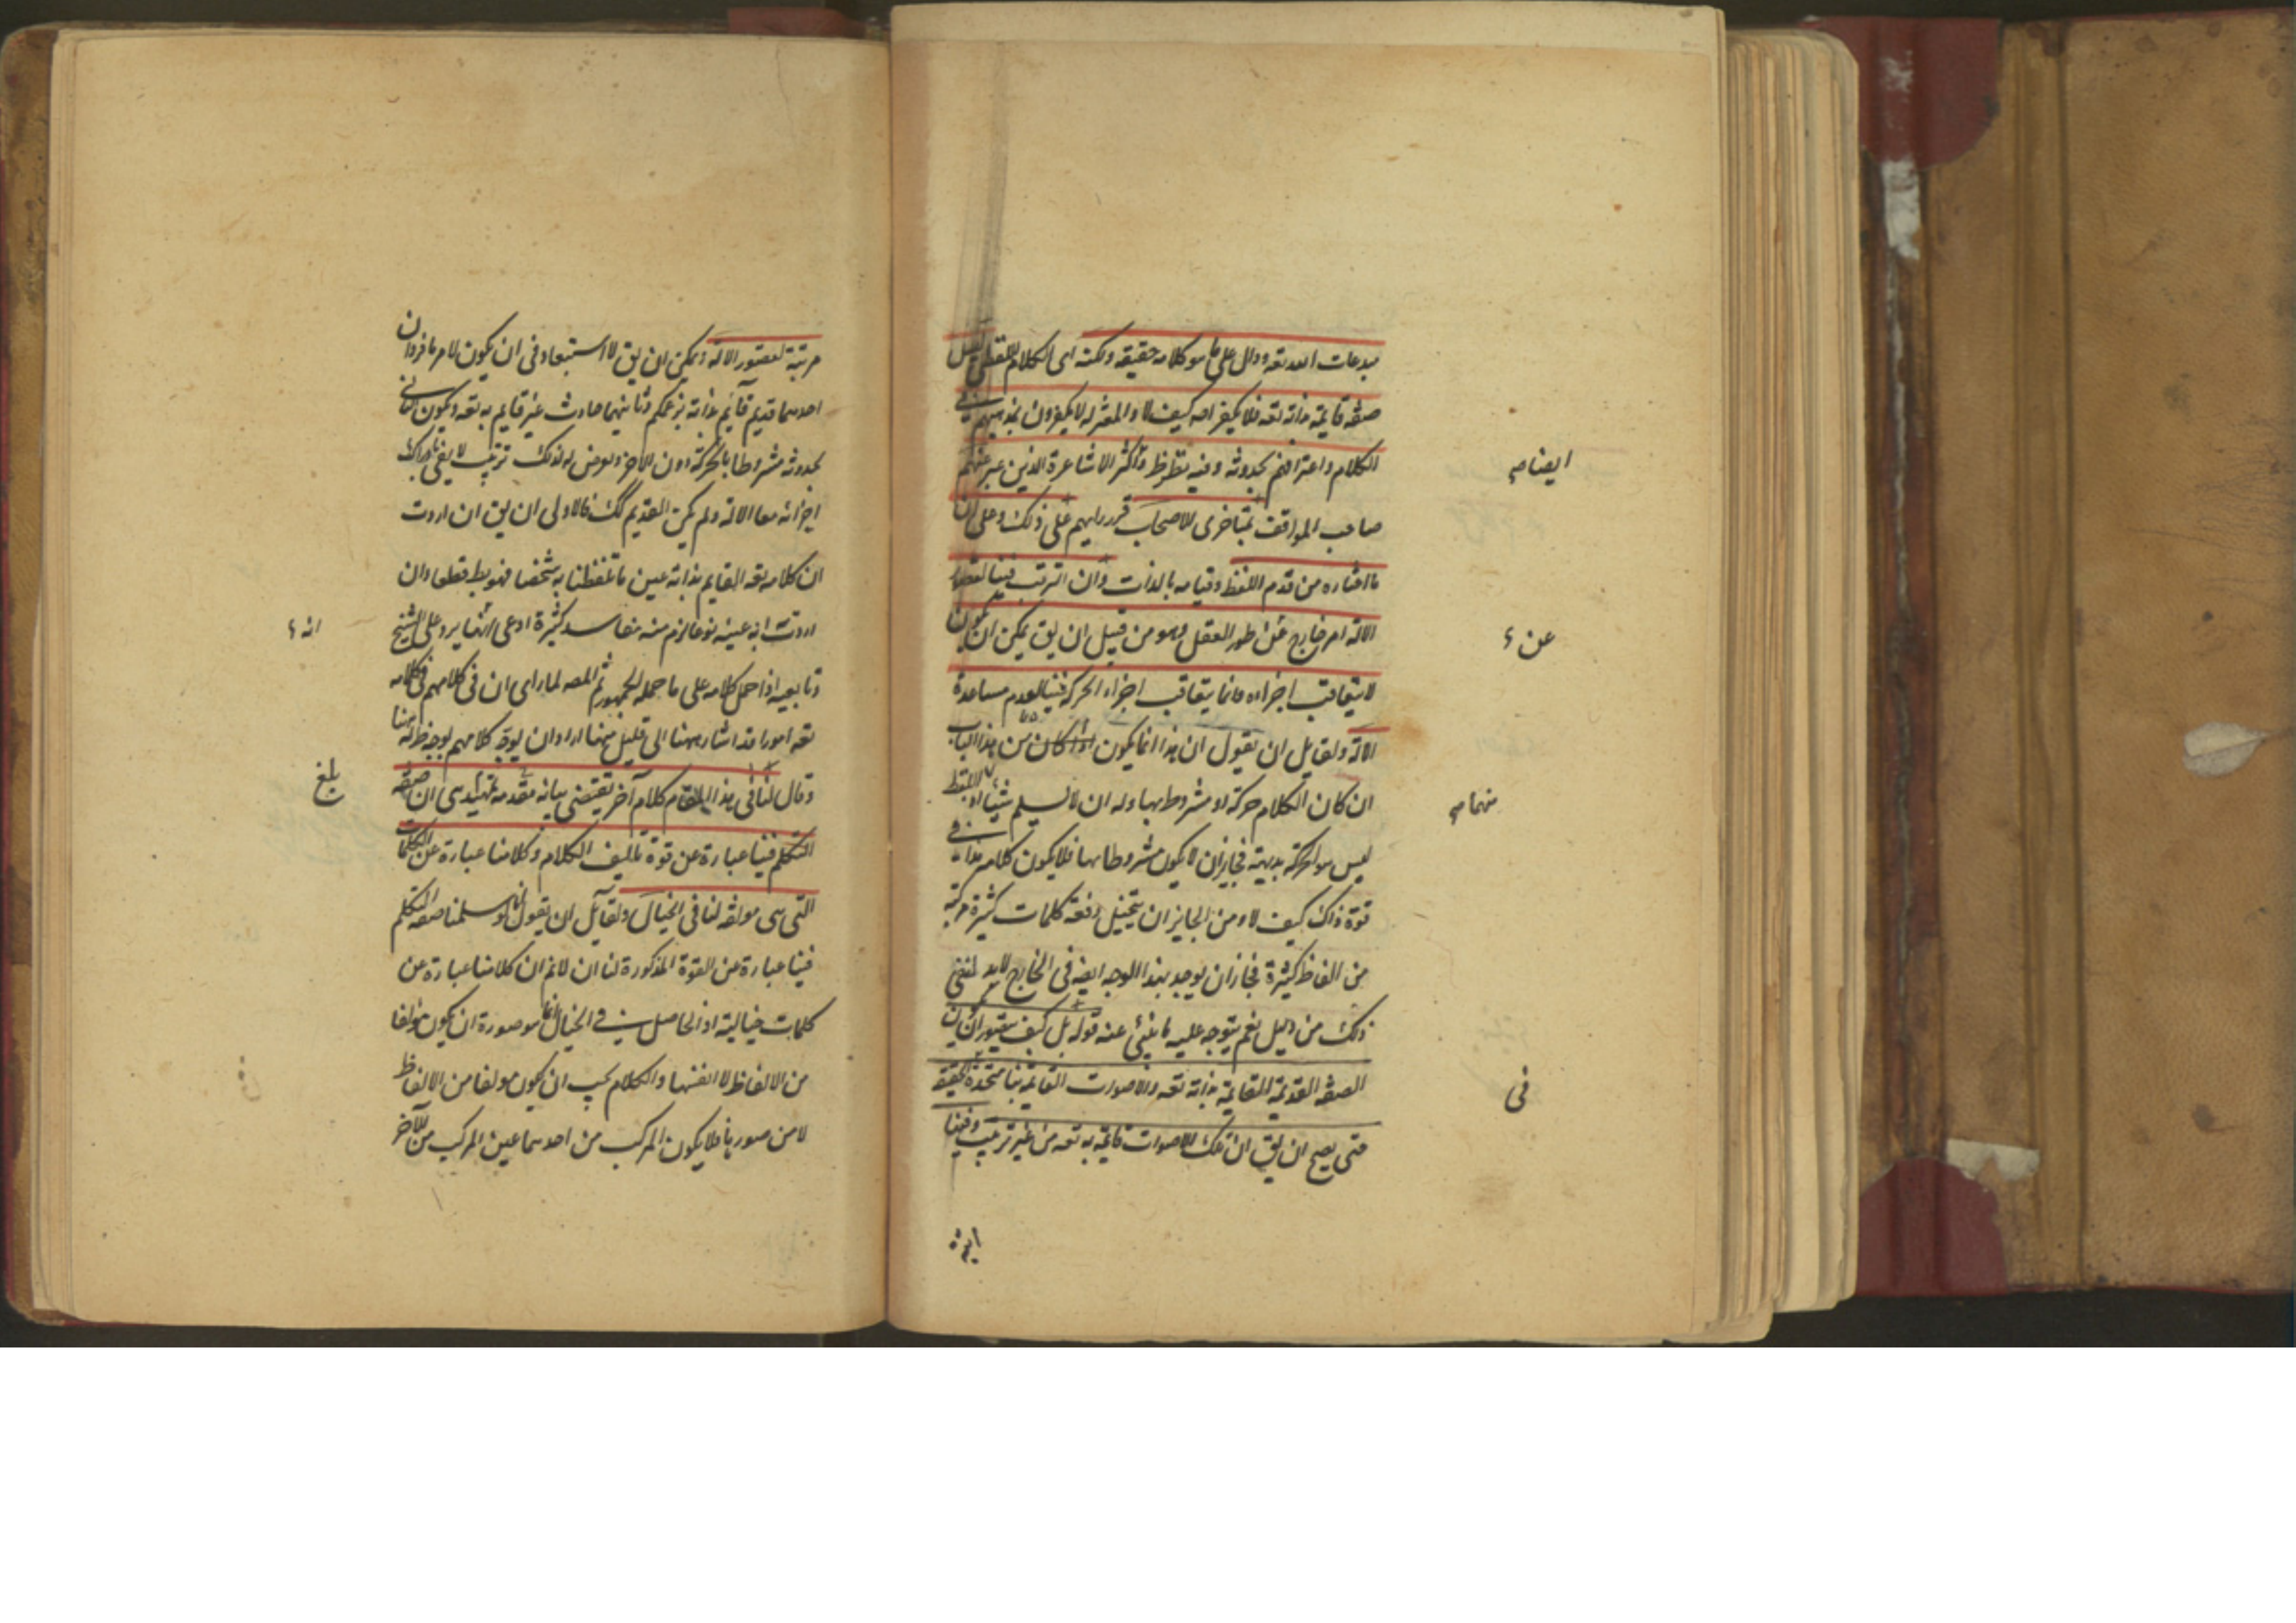 مبدعات الله تعه ودال على ما هو كلامه حقيقة ولكنه اى الكلام اللفظى ليس
صفة قايمة بذاته تعه فلا يكفر اصـ كيف لا والمعتزلة لا يكفرون بمذهبهم فى
الكلام واعترافهم بحدوثه وفيه نظر ظ واكثر الاشاعرة الذين عبر عنهم
ايضا صح
صاحب المواقف بمتاخرى الاصحاب قرر رايهم على ذلك وعلى ان
ما اختاره من قدم اللفظ وقيامه بالذات وان الترتب فينا لقصور
الالة امر خارج عن طور العقل وهو من قبيل ان يق يمكن ان يكون
عن
لا يتعاقب اجزاءه وانما يتعاقب اجزاء الحركة فينا لعدم مساعدة
الالة ولقايل ان يقول ان هذا انما يكون اذا كان من هذا الباب
ان كان الكلام حركة او مشروطا بها وله ان لا يسلم شيئا اذ اللفظ
منهما صح
ليس هو الحركة بديهة فجاز ان لا يكون مشروطا بها فلا يكون كلامه هذا فى
قوة ذاك كيف لا ومن الجايز ان يتخيل دفعة كلمات كثيرة مركبة
من الفاظ كثيرة فجاز ان يوجد بهذا الوجه ايضه فى الخارج لابد لنفى
ذلك من دليل نعم يتوجه عليه ما ينبئ عنه قوله بل كيف يتصور ان يكون
الصفة القديمة القايمة بذاته تعه والاصوات القايمة بنا متحدة الحقيقة
فى
حتى يصح ان يق ان تلك الاصوات قايمة به تعه من غير ترتيب وفينا
مرتبة لقصور الالة ويمكن ان يق لا استبعاد فى ان يكون لامر ما فردان
احدهما قديم قايم بذاته بزعمكم وثانيهما حادث غير قايم به تعه ويكون الثانى
بحدوثه مشروطا بالحركة دون الاخر ويعرض له لذلك ترتيب لا يفى
اجزائه معا الالة ولم يكن القديم كك فالاولى ان يق ان اردت
ان كلامه تعه القايم بذاته عين ما تلفظنا به شخصا فهو بط قطعا وان
اردت انه عينه نوعا لزم منه مفاسد كثيرة ادعى انها يرد على الشيخ
انه
وتابعيه اذا حمل كلامه على ما حمله الجمهور ثم المصـ لما راى ان فى كلامهم فى كلامه
تعه امورا قد اشار ههنا الى قليل منها اراد ان يوجه كلامهم بوجه ظ له ههنا
وقال لنا فى هذا المقام كلام آخر يقتضى بيانه مقدمة تمهيد هى ان صفة
بلغ
التكلم فينا عبارة عن قوة تاليف الكلام وكلامنا عبارة عن الكلمات
التى هى مولفة لنا فى الخيال ولقايل ان يقول انا لو سلمنا صفة التكلم
فينا عبارة عن القوة المذكورة لنا ان لا نم ان كلامنا عبارة عن
كلمات خيالية اذ الحاصل فى الخيال انما هو صورة ان يكون مولفا
من الالفاظ لا انفسها والكلام يجب ان يكون مولفا من الالفاظ
لا من صورها فلا يكون المركب من احدهما عين المركب من الآخر